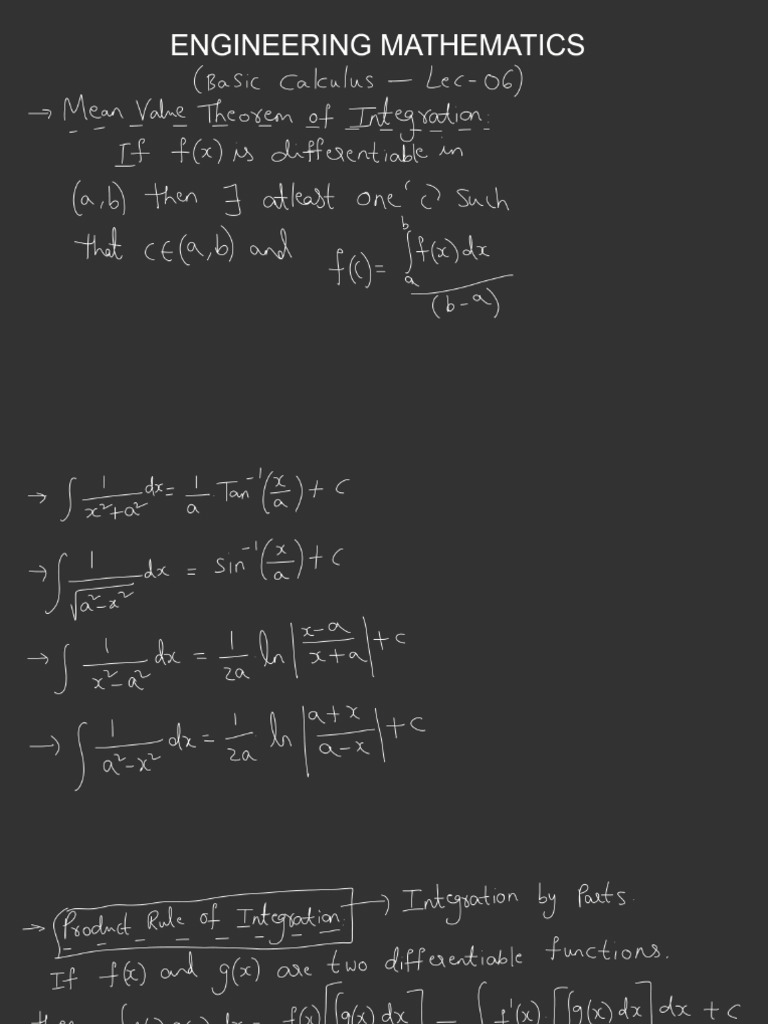 ENGINEERING MATHEMATICS
(Basic Calculus — Lec-06)
→ Mean Value Theorem of Integration:
If f(x) is differentiable in
(a,b) then ∃ atleast one 'c' such
that c∈(a,b) and f(c)= ∫_a^b f(x)dx / (b-a)
→ ∫ 1/(x²+a²) dx = 1/a Tan⁻¹(x/a) + c
→ ∫ 1/√(a²-x²) dx = sin⁻¹(x/a) + c
→ ∫ 1/(x²-a²) dx = 1/2a ln|(x-a)/(x+a)| + c
→ ∫ 1/(a²-x²) dx = 1/2a ln|(a+x)/(a-x)| + c
→ Product Rule of Integration: → Integration by Parts.
If f(x) and g(x) are two differentiable functions.
then ∫f(x)g(x)dx = f(x)[∫g(x)dx] - ∫f'(x)[∫g(x)dx]dx + c